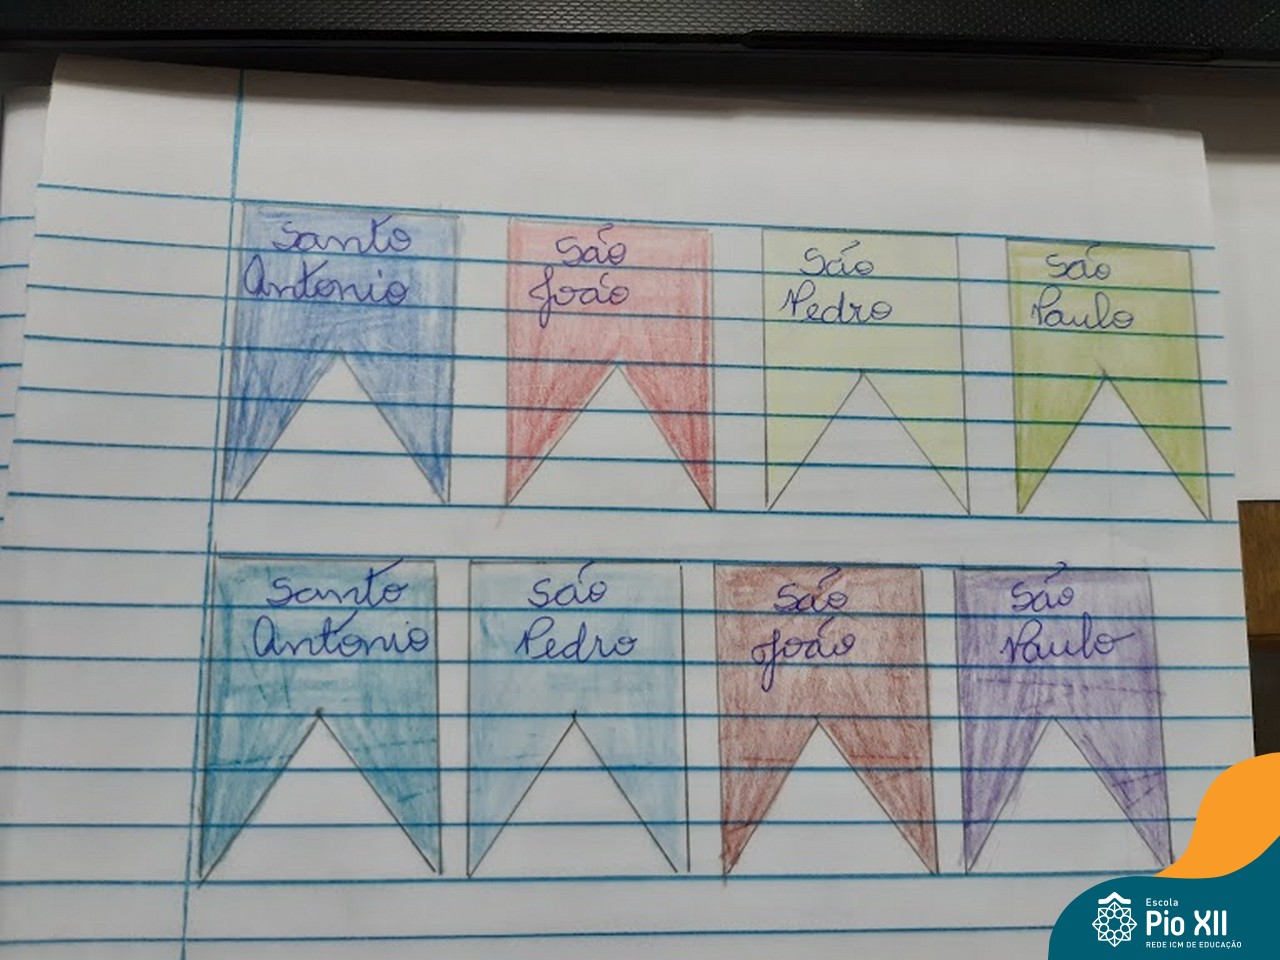 Santo
Antonio
São
João
São
Pedro
São
Paulo
Santo
Antonio
São
Pedro
São
João
São
Paulo
Escola
Pio XII
REDE ICM DE EDUCAÇÃO